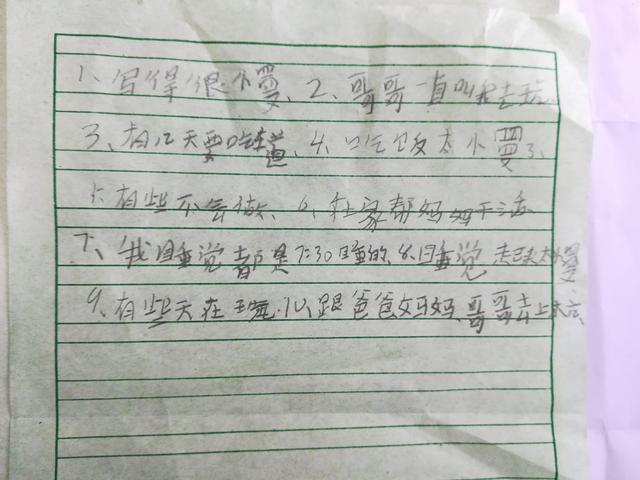 1、写得很慢、2、哥哥一直叫我去玩
3、有几天要吃道、4、口吃饭太慢了、
5、有些不会做、6、在家帮妈妈干活
7、我睡觉都是7:30睡的、8、睡觉起床太慢
9、有些天在玩、10、跟爸爸妈妈、哥哥去上